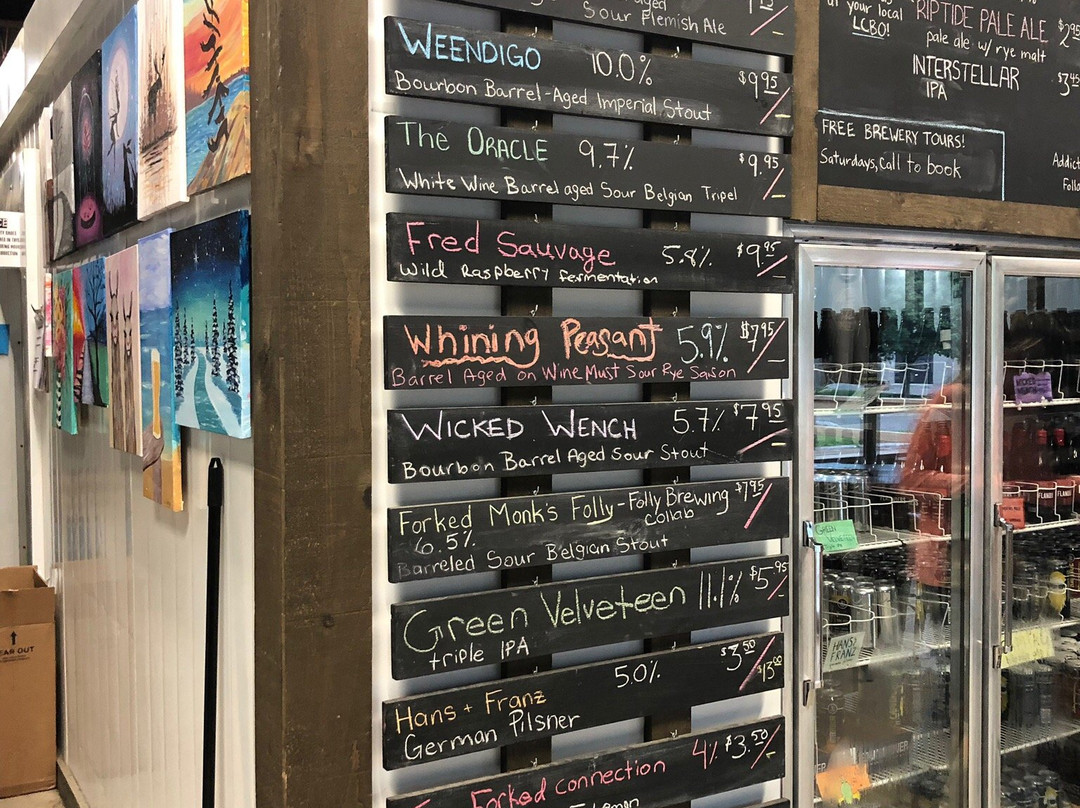 Sour Flemish Ale
WEENDIGO 10.0% $9.95/-
Bourbon Barrel-Aged Imperial Stout
The ORACLE 9.7% $9.95/-
White Wine Barrel aged Sour Belgian Tripel
Fred Sauvage 5.8% $9.95/-
Wild Raspberry fermentation
Whining Peasant 5.9% $7.95/-
Barrel Aged on Wine Must Sour Rye Saison
WICKED WENCH 5.7% $7.95/-
Bourbon Barrel Aged Sour Stout
Forked Monk's Folly-Folly Brewing $7.95/
collab
6.5%
Barreled Sour Belgian Stout
Green Velveteen 11.1% $5.95/-
triple IPA
Hans + Franz 5.0% $3.50/$13.00
German Pilsner
Forked connection 4% $3.50/-
Lemon
at your local
LCBO!
RIPTIDE PALE ALE $2.95
pale ale w/ rye malt
INTERSTELLAR $3.45
IPA
FREE BREWERY TOURS!
Saturdays, Call to book
Addict
Follo
GREEN
HANS+
FRANZ
FLANDE
FLAND
EAR OUT